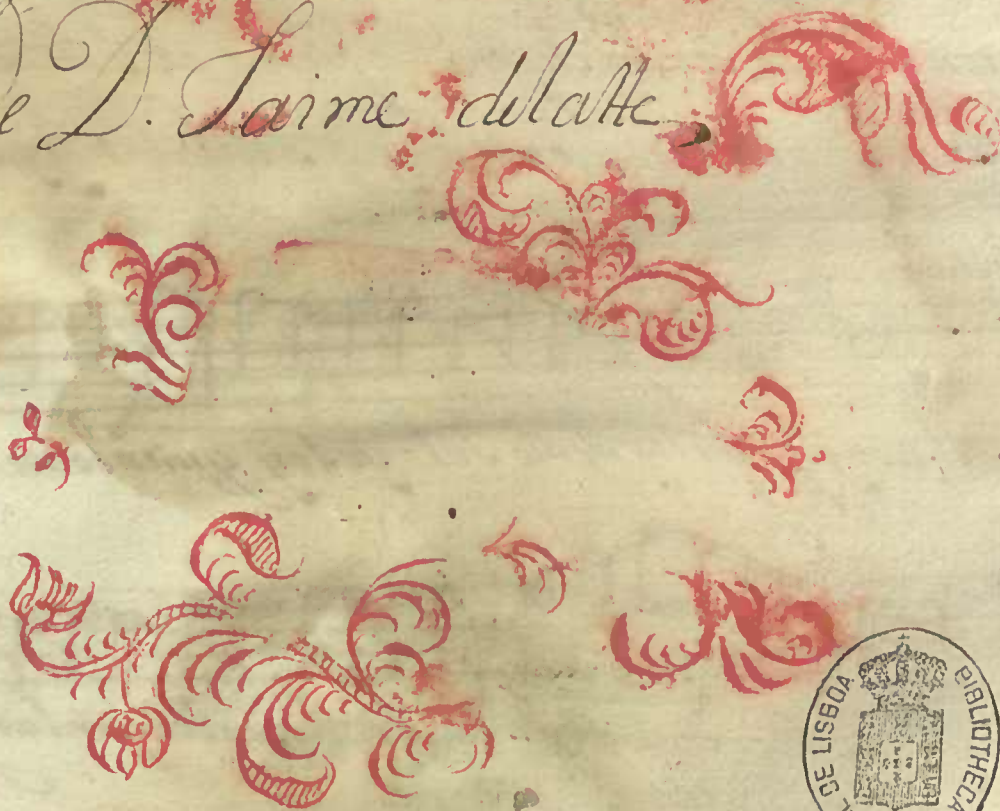 e D. Jaime delatte
DE LISBOA BIBLIOTHECA